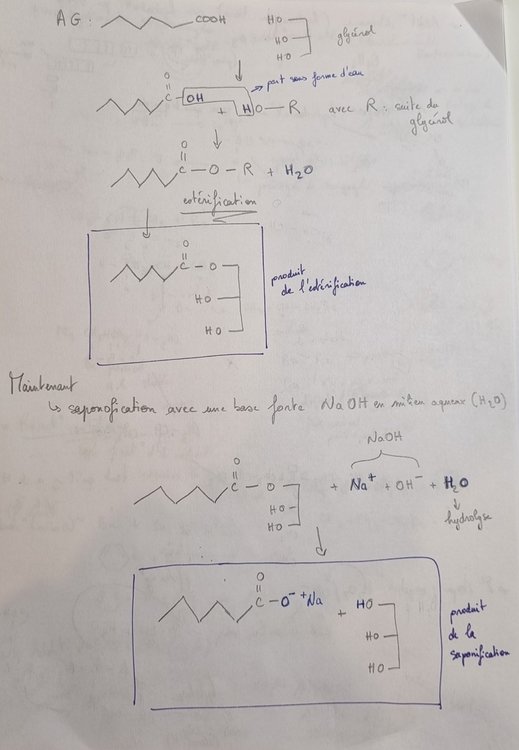 AG: COOH HO
HO glycérol
HO
O → part sous forme d'eau
C OH
+ HO — R avec R: suite du
glycérol
O
C — O — R + H2O
estérification
O
C — O
HO
HO
produit
de l'estérification
Maintenant
↳ saponification avec une base forte NaOH en milieu aqueux (H2O)
NaOH
O
C — O + Na+ + OH- + H2O
HO
HO
hydrolyse
O
C — O- +Na + HO
HO
HO
produit
de la
saponification